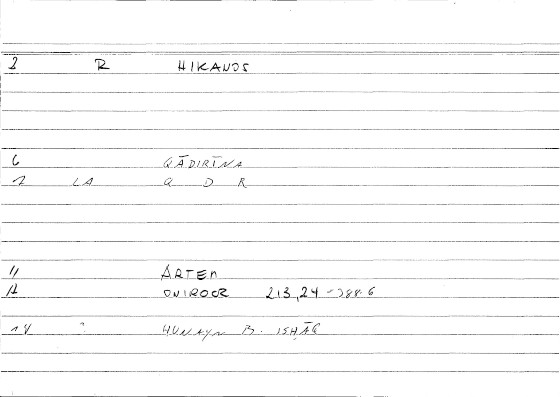 2 R HIKANOS
6 QĀDIRĪNA
1 LA Q D R
11 ARTEM
12 ONIROCR 213,24
14 ? ḤUNAYN B. ISḤĀQ